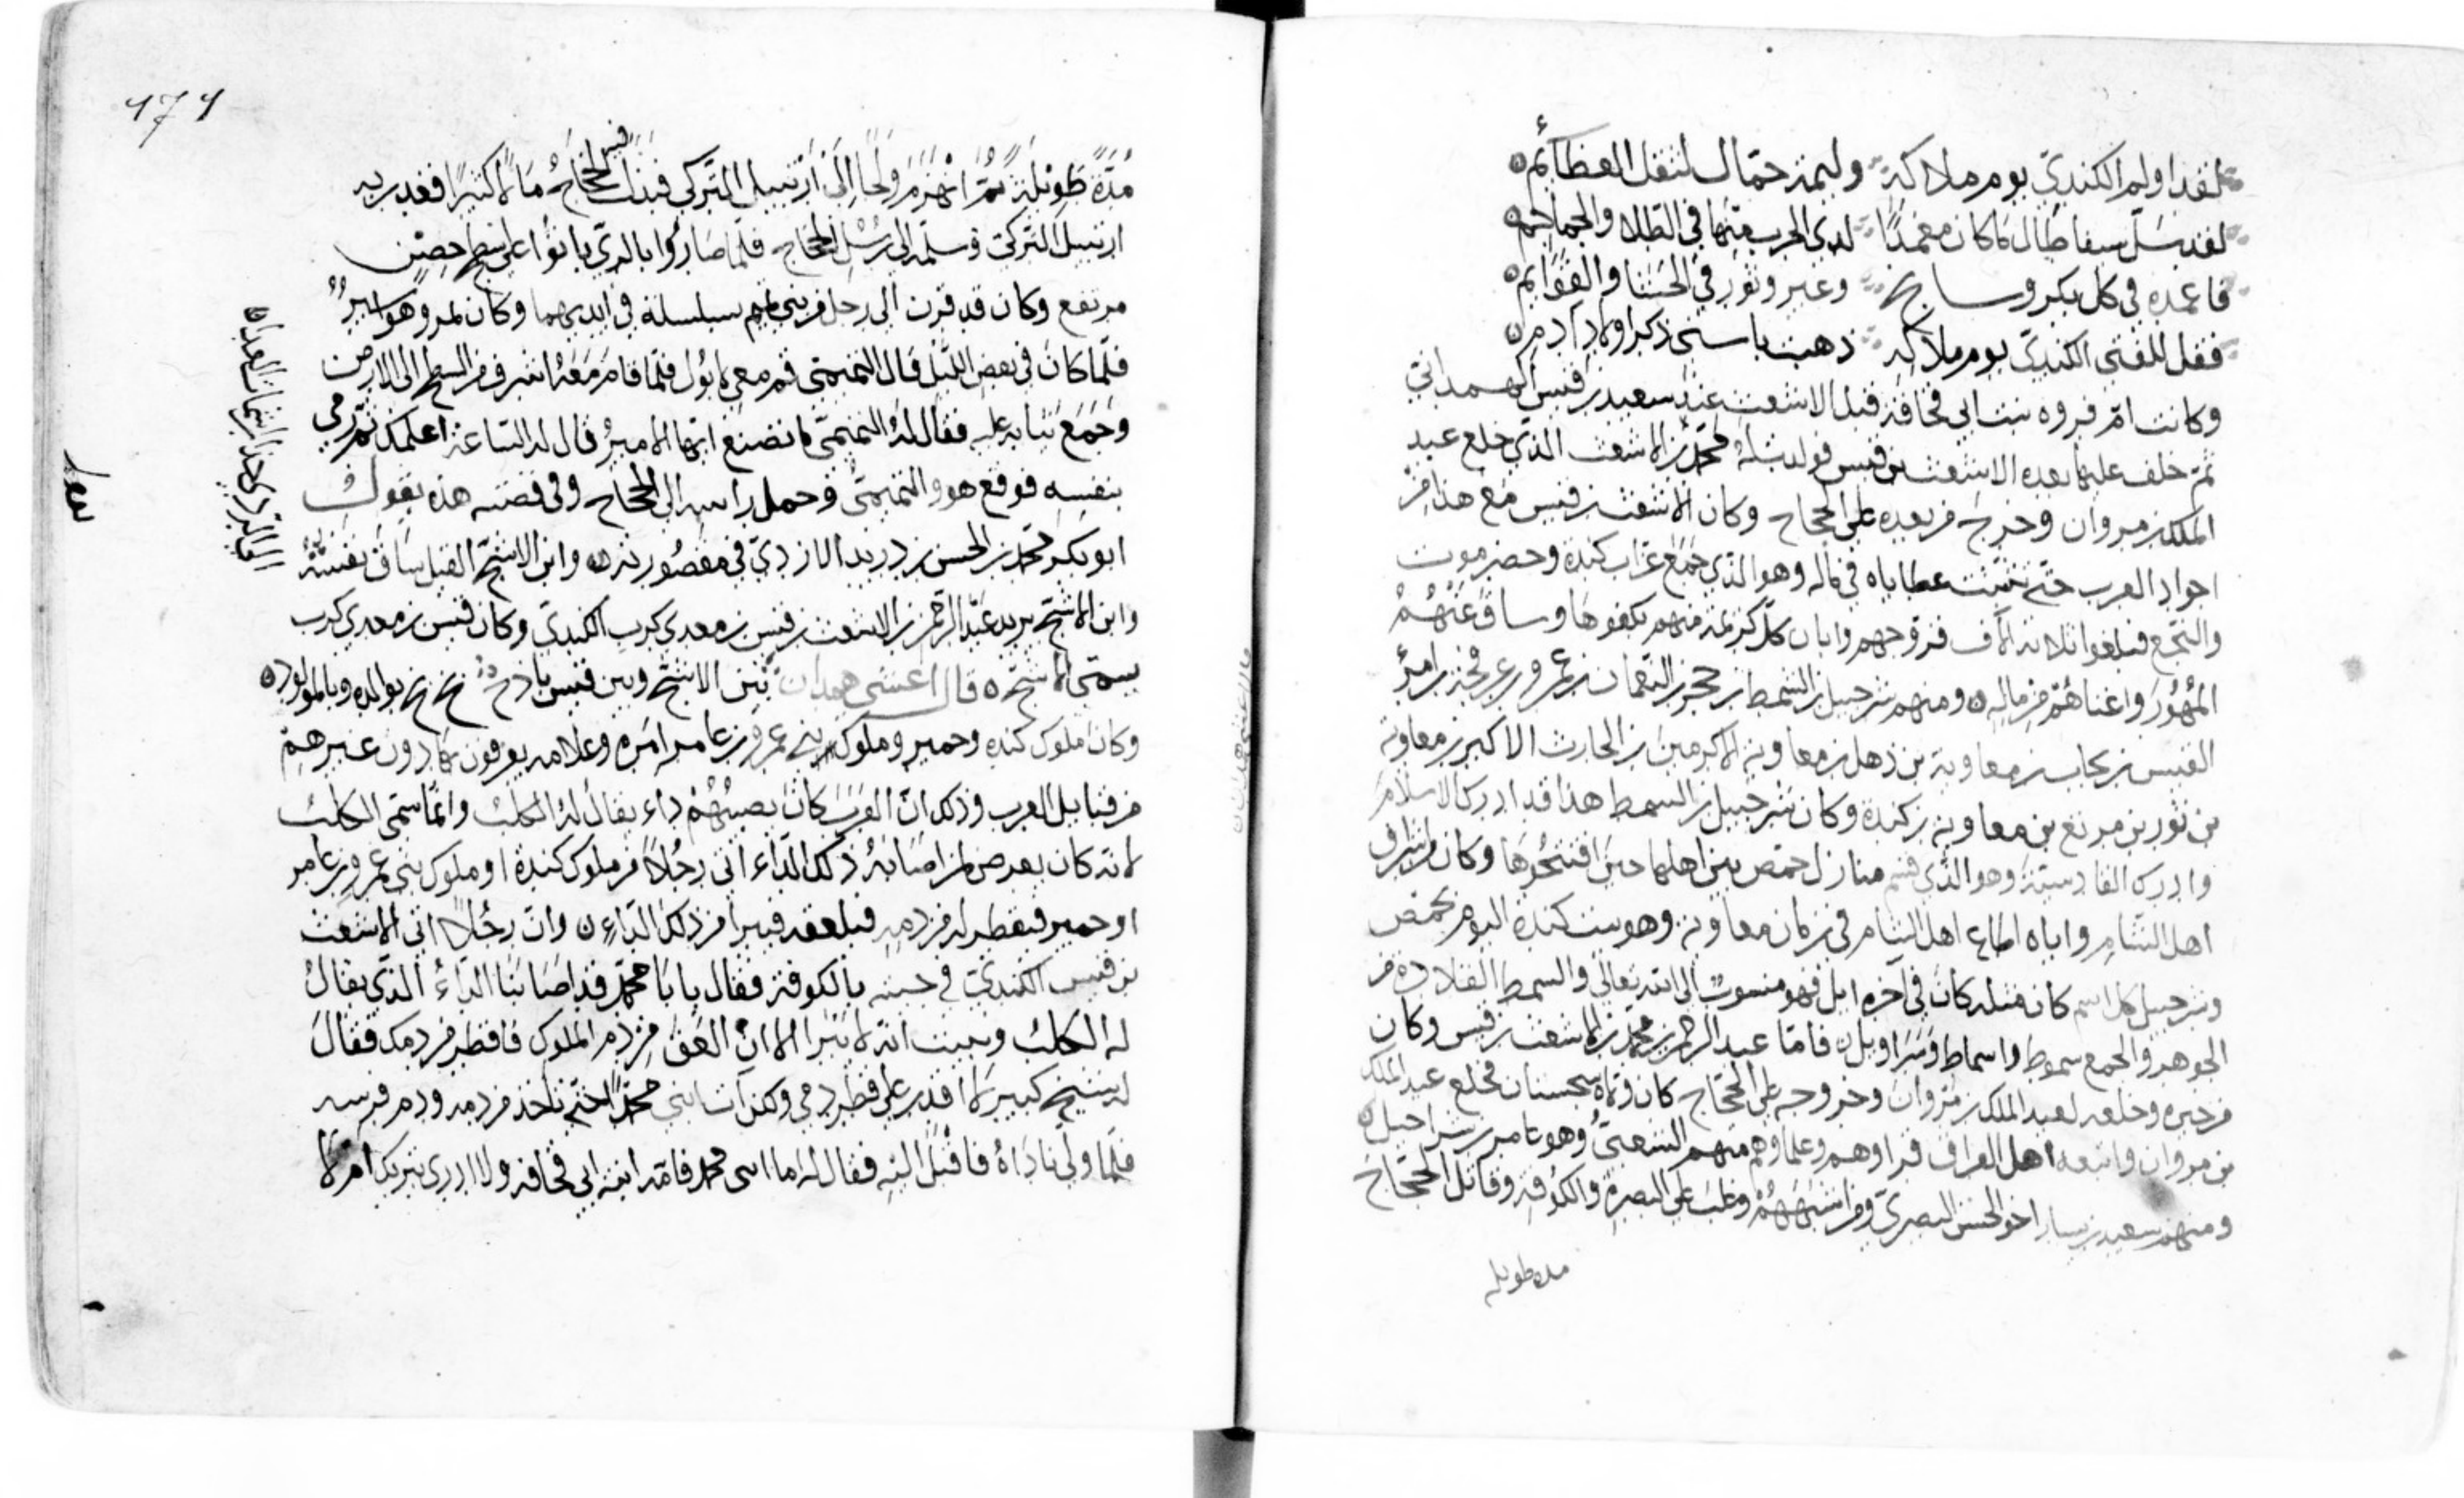 لقد اولم الكندي يوم ملاكه وليمة حمّال لثقل العظائم
لقد سلّ سيفا طال ما كان مغمدًا لدى الحرب منها في الطلا والجماجم
فاغمده في كل بكر وسابح وعير وثور في الحشا والقوائم
فقل للفتى الكنديّ يوم ملاكه ذهبت باسنى ذكر اولاد آدم
وكانت امّ فروه بنت ابي قحافة قبل الاشعث عند سعيد بن قيس الهمداني
ثم خلف عليها بعده الاشعث بن قيس فولدت له محمد بن الاشعث الذي خلع عبد
الملك بن مروان وخرج من بعده على الحجاج وكان الاشعث بن قيس مع هذا من
اجواد العرب حتى عطاياه في ماله وهو الذي جمع عزاب كندة وحضرموت
والنخع فبلغوا ثلاثة الآف فزوجهم وابان كل كريمة منهم بكفوها وساق عنهم
المهور واغناهم من ماله ومنهم شرحبيل بن السمط بن حجر بن النعمان بن عمرو بن عرفجة بن امرؤ
القيس بن معاوية بن ذهل بن معاوية الاكرمين بن الحارث الاكبر بن معاوية
بن ثور بن مرتع بن معاوية بن كندة وكان شرحبيل بن السمط هذا قد ادرك الاسلام
وادرك القادسية وهو الذي قسم منازل حمص بين اهلها حين افتتحوها وكان من اشراف
اهل الشام واياه اطاع اهل الشام في زمان معاوية وهو بيت كندة اليوم بحمص
وشرحبيل كل اسم كان مثله كان في آخره ايل فهو منسوب الى الله تعالى والسمط القلادة من
الجوهر والجمع سموط واسماط وسراويل فامّا عبد الرحمن بن محمد بن الاشعث بن قيس وكان
من خبره وخلعه لعبد الملك بن مروان وخروجه على الحجّاج كان ولاه سجستان فخلع عبد الملك
بن مروان واتبعه اهل العراق قراوهم وعلماوهم منهم الشعبيّ وهو عامر بن شراحيل
ومنهم سعيد بن يسار اخو الحسن البصريّ ومن اشبههم وغلب على البصرة والكوفة وقاتل الحجّاج
مده طويله
مدّة طويلة ثمّ انهزم ولجا الى ارتبيل التركي فبذل فيه الحجاج مالا كثيرا فغدر به
ارتبيل التركي وسلّمه الى رسل الحجاج فلمّا صاروا بالريّ باتوا على سطح حصن
مرتفع وكان قد قرن الى رجل من بني تميم سلسلة في ايديهما وكان وهو اسير
فلمّا كان في بعض الليل قال للتميمي قم معي لابول فلمّا قام معه اشرف من السطح الى الارض
وجمع ثيابه عليه فقال له التميمي ما تصنع ايّها الامير قال له الساعة اعلمك ثم رمى
بنفسه فوقع هو والتميميّ وحمل راسه الى الحجاج وفي قصته هذه يقول
ابو بكر محمد بن الحسن بن دريد الازديّ في مقصورته وابن الاشجّ القيل ساق نفسه
وابن الاشج يريد عبد الرحمن بن الاشعث بن قيس بن معدي كرب الكنديّ وكان قيس بن معدي كرب
يسمى الاشج قال اعشى همدان بين الاشج وبين قيس باذخ بخ بخ لوالده وللمولود
وكان ملوك كنده وحمير وملوك بني عمرو بن عامر وعلامه يعرفون بها دون غيرهم
من قبايل العرب وذلك انّ العرب كان يصيبهم داء يقال له الكلب وانّما سمّى الكلب
لانه كان يعرض لمن اصابه ذلك الداء اتى رجلًا من ملوك كندة او ملوك بني عمرو بن عامر
او حمير فيقطر له من دمه فيلعقه فيبرا من ذلك الداء وان رجلًا اتى الاشعث
بن قيس الكنديّ في بالكوفة فقال يا با محمد قد اصابنا الداء الذي يقال
له الكلب انه لا يبرا الا ان العق من دم الملوك فاقطر من دمك فقال
له شيخ كبير لا اقدر على قطر دمي ولكن ايت ابني محمّدًا حتى تاخذ من دمه ودم فرسه
فلمّا ولّى ناداه فاقبل اليه فقال له اما ابنى محمد فامّه ابنة ابي قحافة ولا ادري يبريك ام لا
قال اعشى همدان